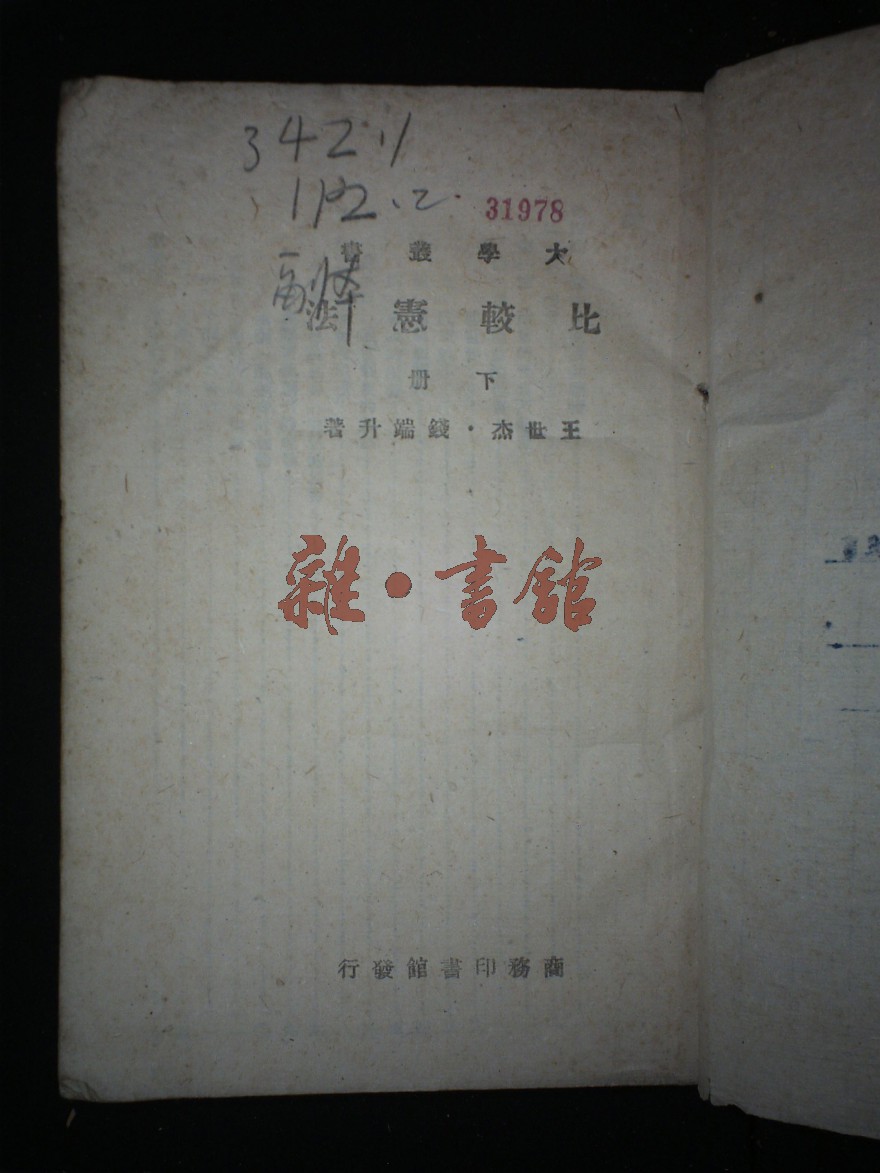 342.11
31978
大學叢書
比較憲法
下册
王世杰·錢端升著
雜·書館
商務印書館發行